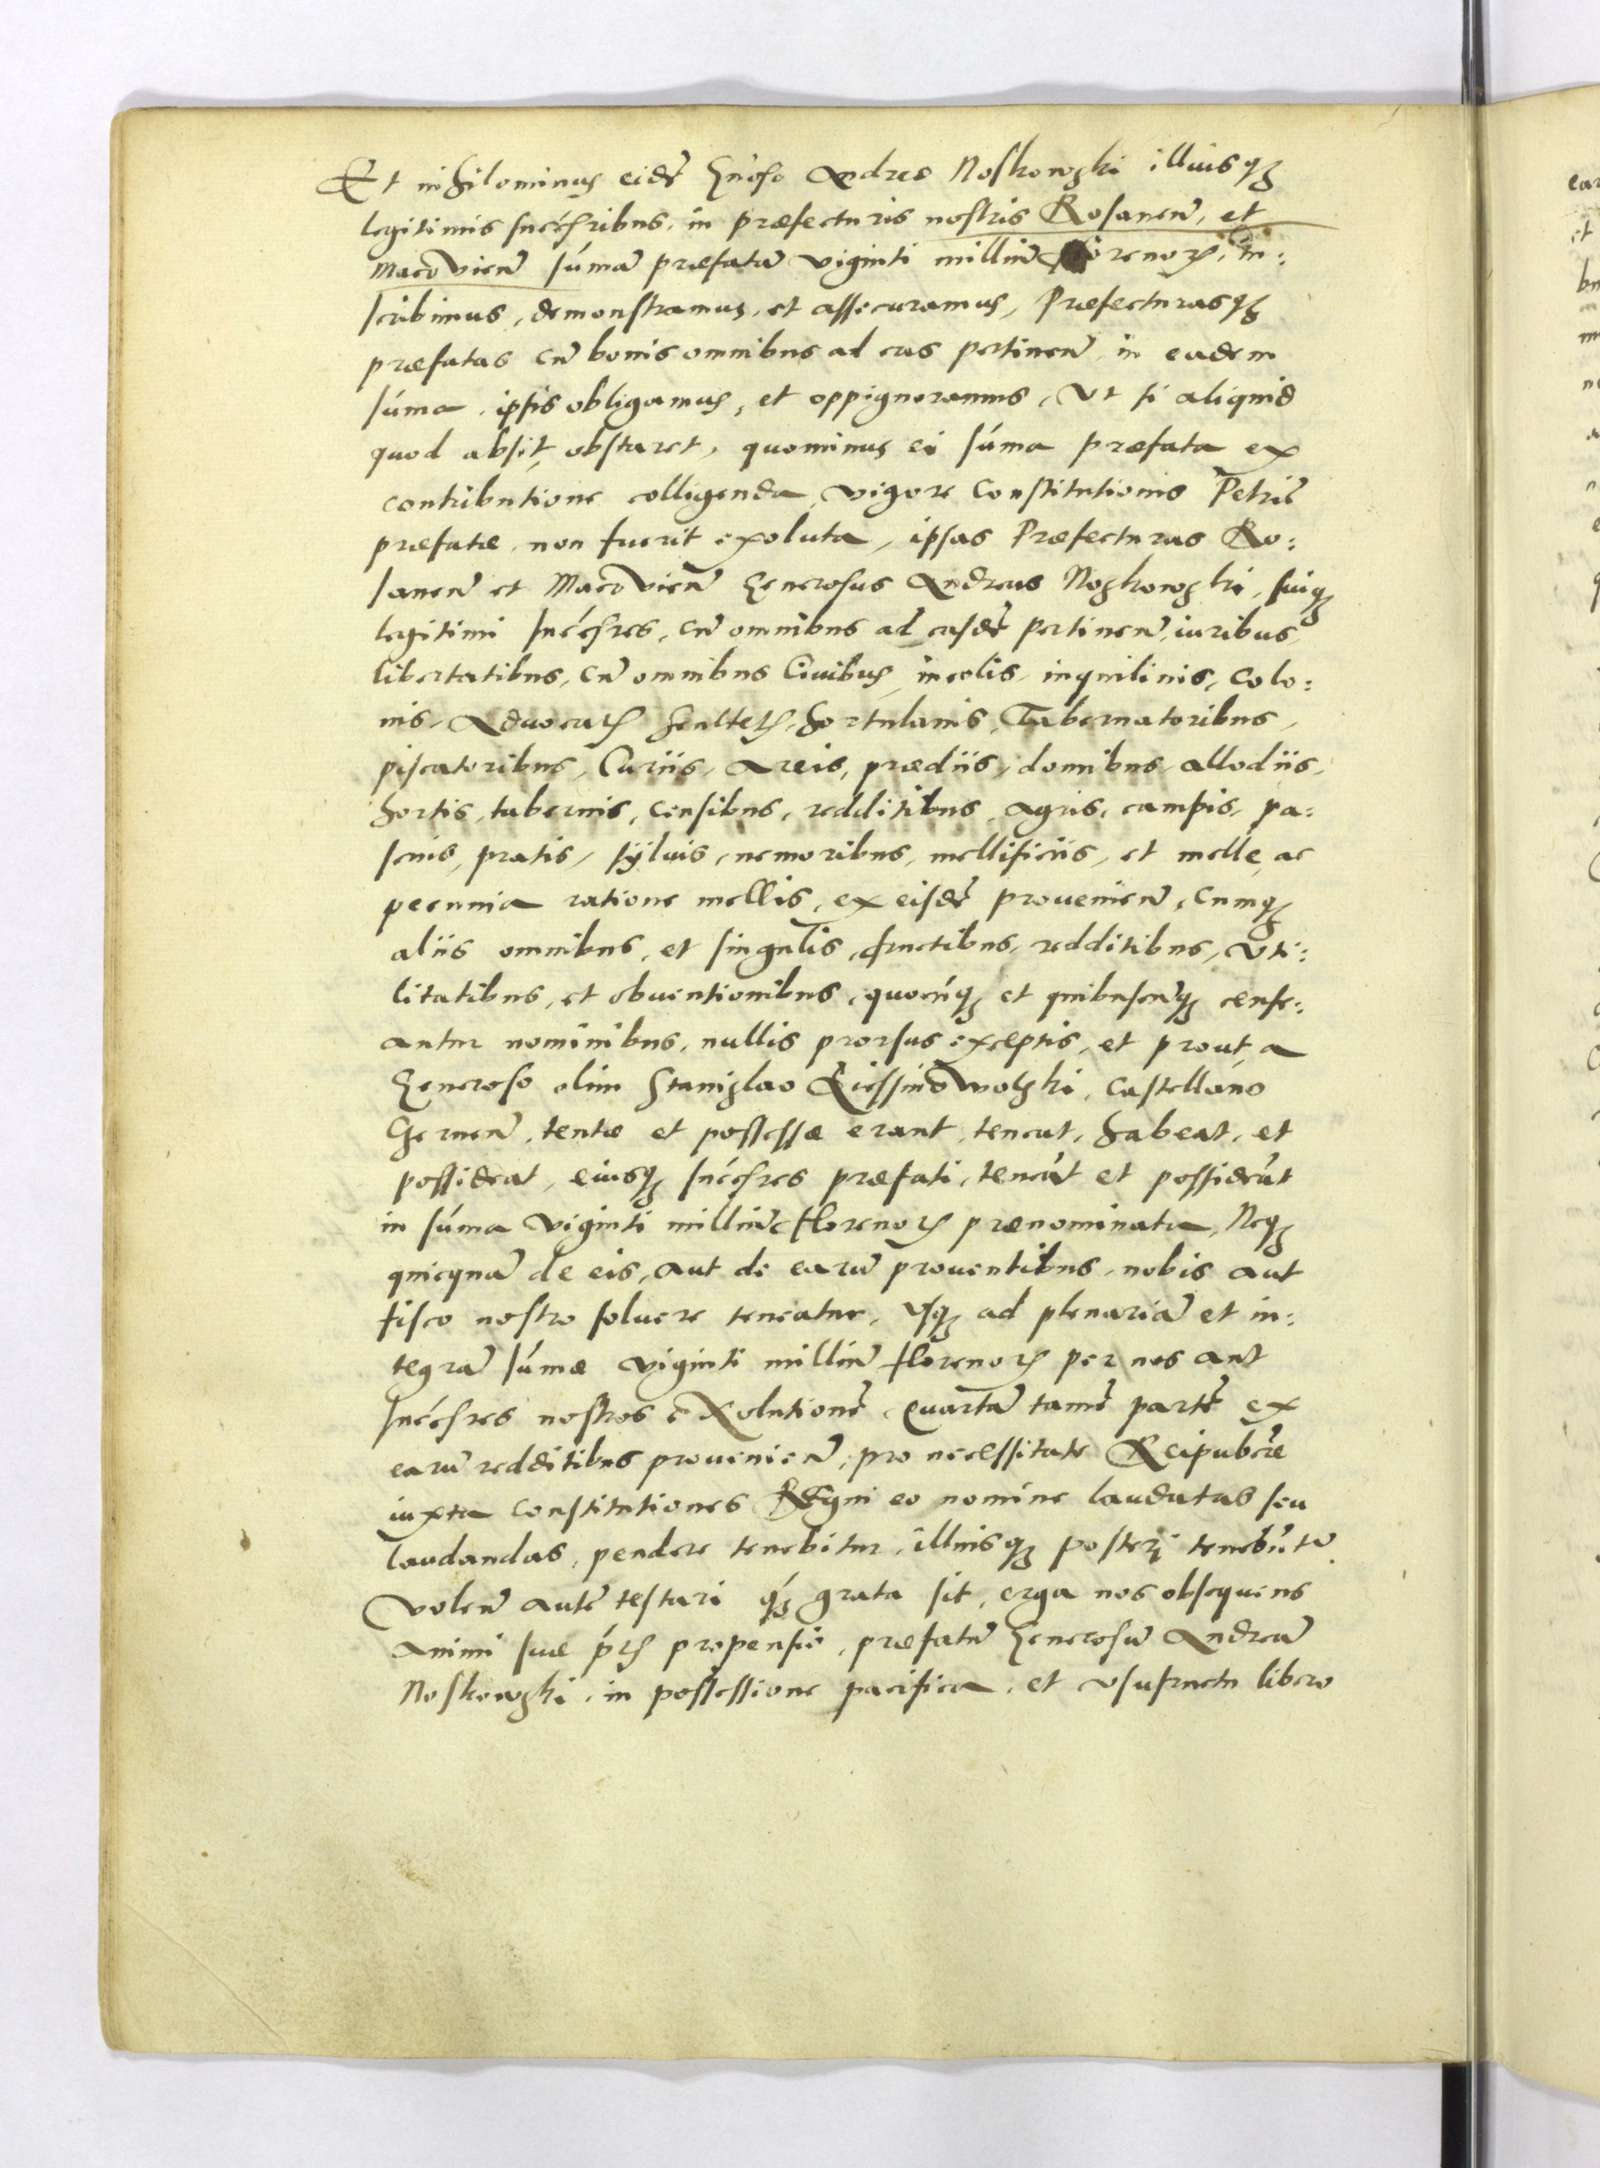 Et nihilominus eidē Gn̄oso Andreæ Noskowski illiusq̨
legitimis succ̄soribus, in præfecturis nostris Rosaneñ, et
Macovieñ sum̄ā præfatā viginti milliū florenoꝝ, in:
scribimus, demonstramus, et assecuramus, Præfecturasq̨
præfatas cū bonis omnibus ad eas pertineñ in eadem
sum̄a, ipsis obligamus, et oppignoramus, Ut si aliquid
quod absit, obstaret, quominus ei sum̄a præfata ex
contributione colligenda, vigore Constitutionis Petric̄
præfatæ, non fuerit exoluta, ipsas Præfecturas Ro:
saneñ et Macovieñ Generosus Andreas Noskowski, suiq̨
legitimi succ̄sores, cū omnibus ad easdē pertineñ, iuribus,
libertatibus, cū omnibus Civibus, incolis, inquilinis, Colo:
nis, Advocatis scultetis, hortulanis, Tabernatoribus,
piscatoribus, Curiis, Areis, prædiis, domibus, allodiis,
hortis, tabernis, censibus, redditibus, agris, campis, pa:
scuis, pratis, sÿluis, nemoribus, mellificiis, et melle, ac
pecunia ratione mellis, ex eisdē provenieñ, cumq̨
aliis omnibus, et singulis, fructibus, redditibus, Uti:
litatibus, et obuentionibus, quocūq̨ et quibuscūq̨ cense:
antur nominibus, nullis prorsus exceptis, et prout, a
Generoso olim Stanislao Kiessindwolski, Castellano
Cerneñ, tentæ et possessæ erant, teneat, habeat, et
possideat, eiusq̨ succ̄sores præfati, teneāt et possideāt
in sum̄a viginti milliū florenoꝝ prænominata, Neq̨
quicquā de eis, aut de earū prouentibus, nobis aut
fisco nostro soluere teneatur, usq̨ ad plenariā et in:
tegrā sum̄æ viginti milliū florenoꝝ per nos aut
succ̄sores nostros eXolutionē, Quartā tamē partē ex
earū redditibus provenieñ, pro necessitate Reipub̄cæ
iuxta constitutiones REgni eo nomine laudatas seu
laudandas, pendere tenebitur, illiusq̨ posteri tenebūtur
Voleñ autē testari q̨ grata sit, erga nos obsequens
Animi suæ propensio, præfatū Generosū Andreā
Noskowski, in possessione pacifica, et usufructu libero